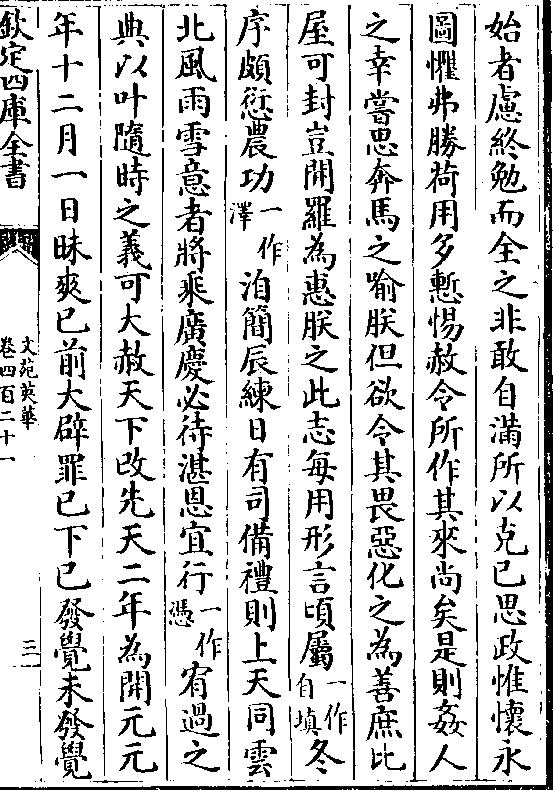 始者慮終勉而全之非敢自滿所以克已思政惟懷永
圖懼弗勝荷用多慙惕赦令所作其來尚矣是則姦人
之幸嘗思奔馬之喻朕但欲令其畏惡化之為善庶比
屋可封豈開羅為惠朕之此志每用形言頃屬一作自填冬
序頗愆農功一作澤洎簡辰練日有司備禮則上天同雲
北風雨雪意者將乘廣慶必待湛恩宜行一作憑宥過之
典以叶隨時之義可大赦天下改先天二年為開元元
年十二月一日昧爽已前大辟罪已下已發覺未發覺
欽定四庫全書
文苑英華
卷四百二十一
三